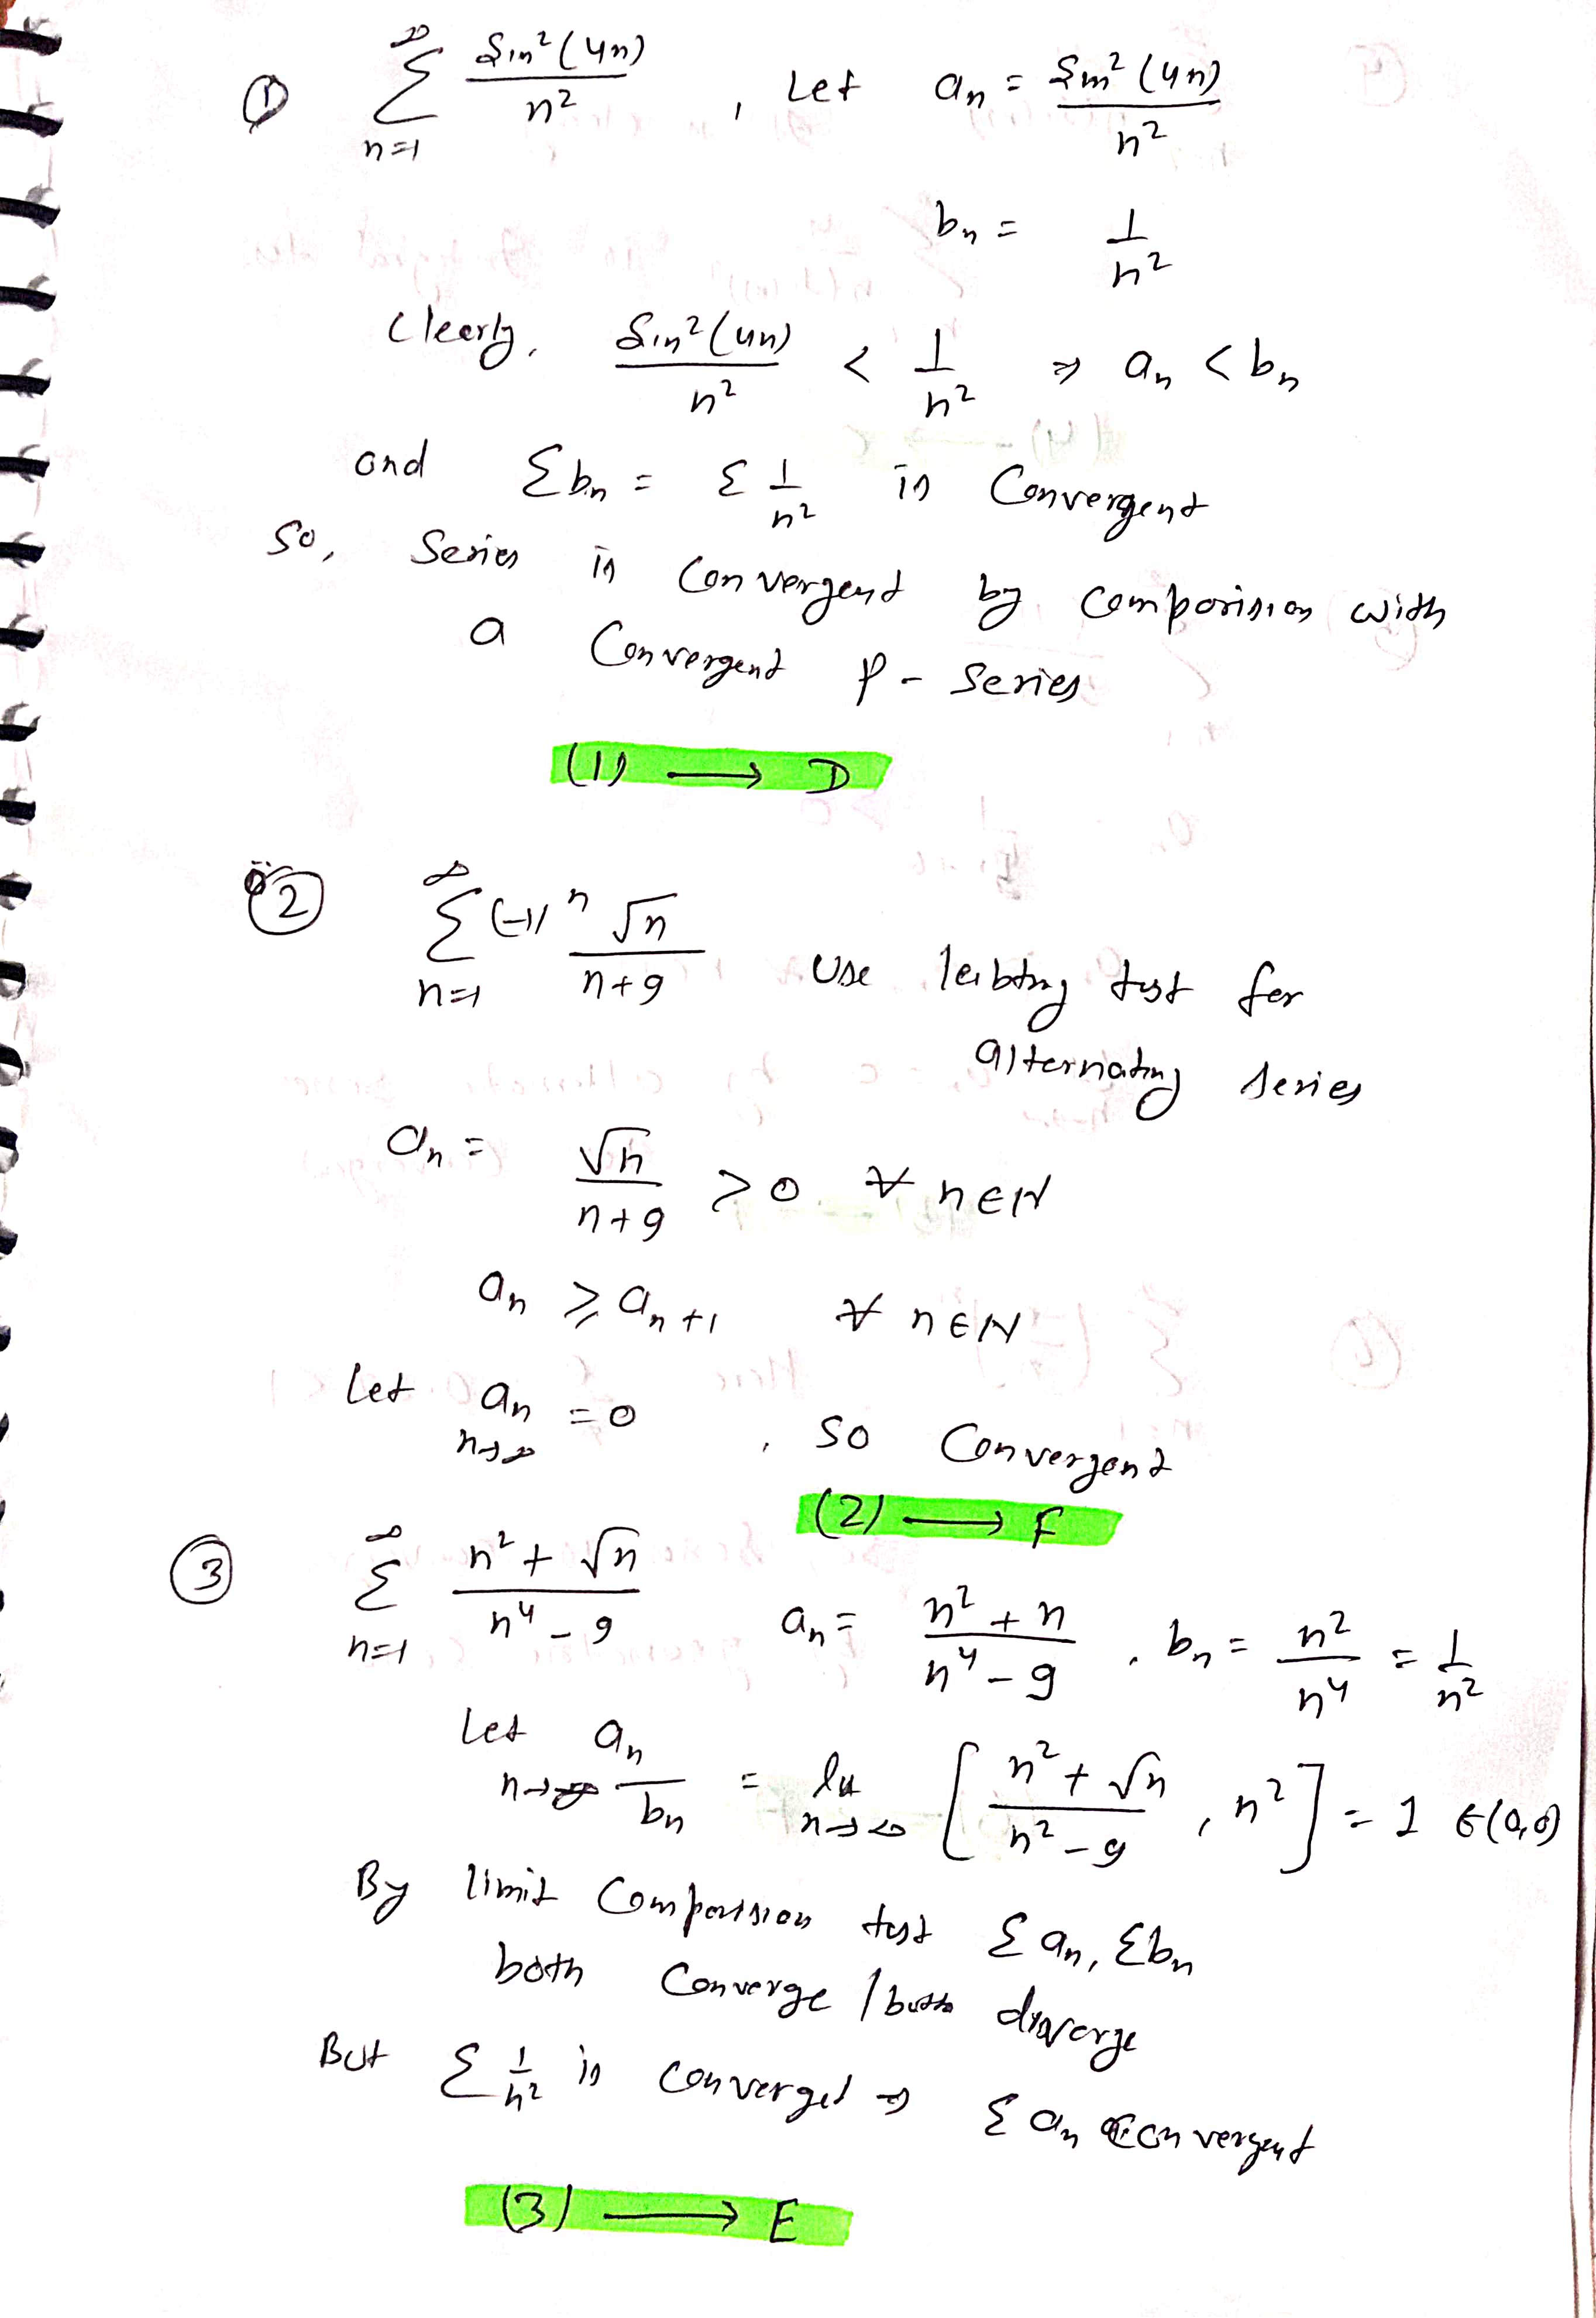 ① ∞ Σ n=1 Sin²(4n) / n² , Let an = Sin²(4n) / n²
bn = 1 / n²
Clearly, Sin²(4n) / n² < 1 / n² ⇒ an < bn
and Σbn = Σ 1 / n² is Convergent
So, Series is Convergent by Comparision with
a Convergent P - Series
(1) → D
② ∞ Σ n=1 (-1)ⁿ √n / n+9 Use test for
alternating Series
an = √n / n+9 > 0 ∀ n∈N
an ≥ an+1 ∀ n∈N
Let n→∞ an = 0 , So Convergent
(2) → F
③ ∞ Σ n=1 n² + √n / n⁴ - 9 an = n² + n / n⁴ - 9 , bn = n² / n⁴ = 1 / n²
Let n→∞ an / bn = n→∞ [ n² + √n / n² - 9 , n² ] = 1 ∈(0,∞)
By limit Comparision test Σan, Σbn
both Converge / both diverge
But Σ 1 / n² is converget ⇒ Σ an Convergent
(3) → E